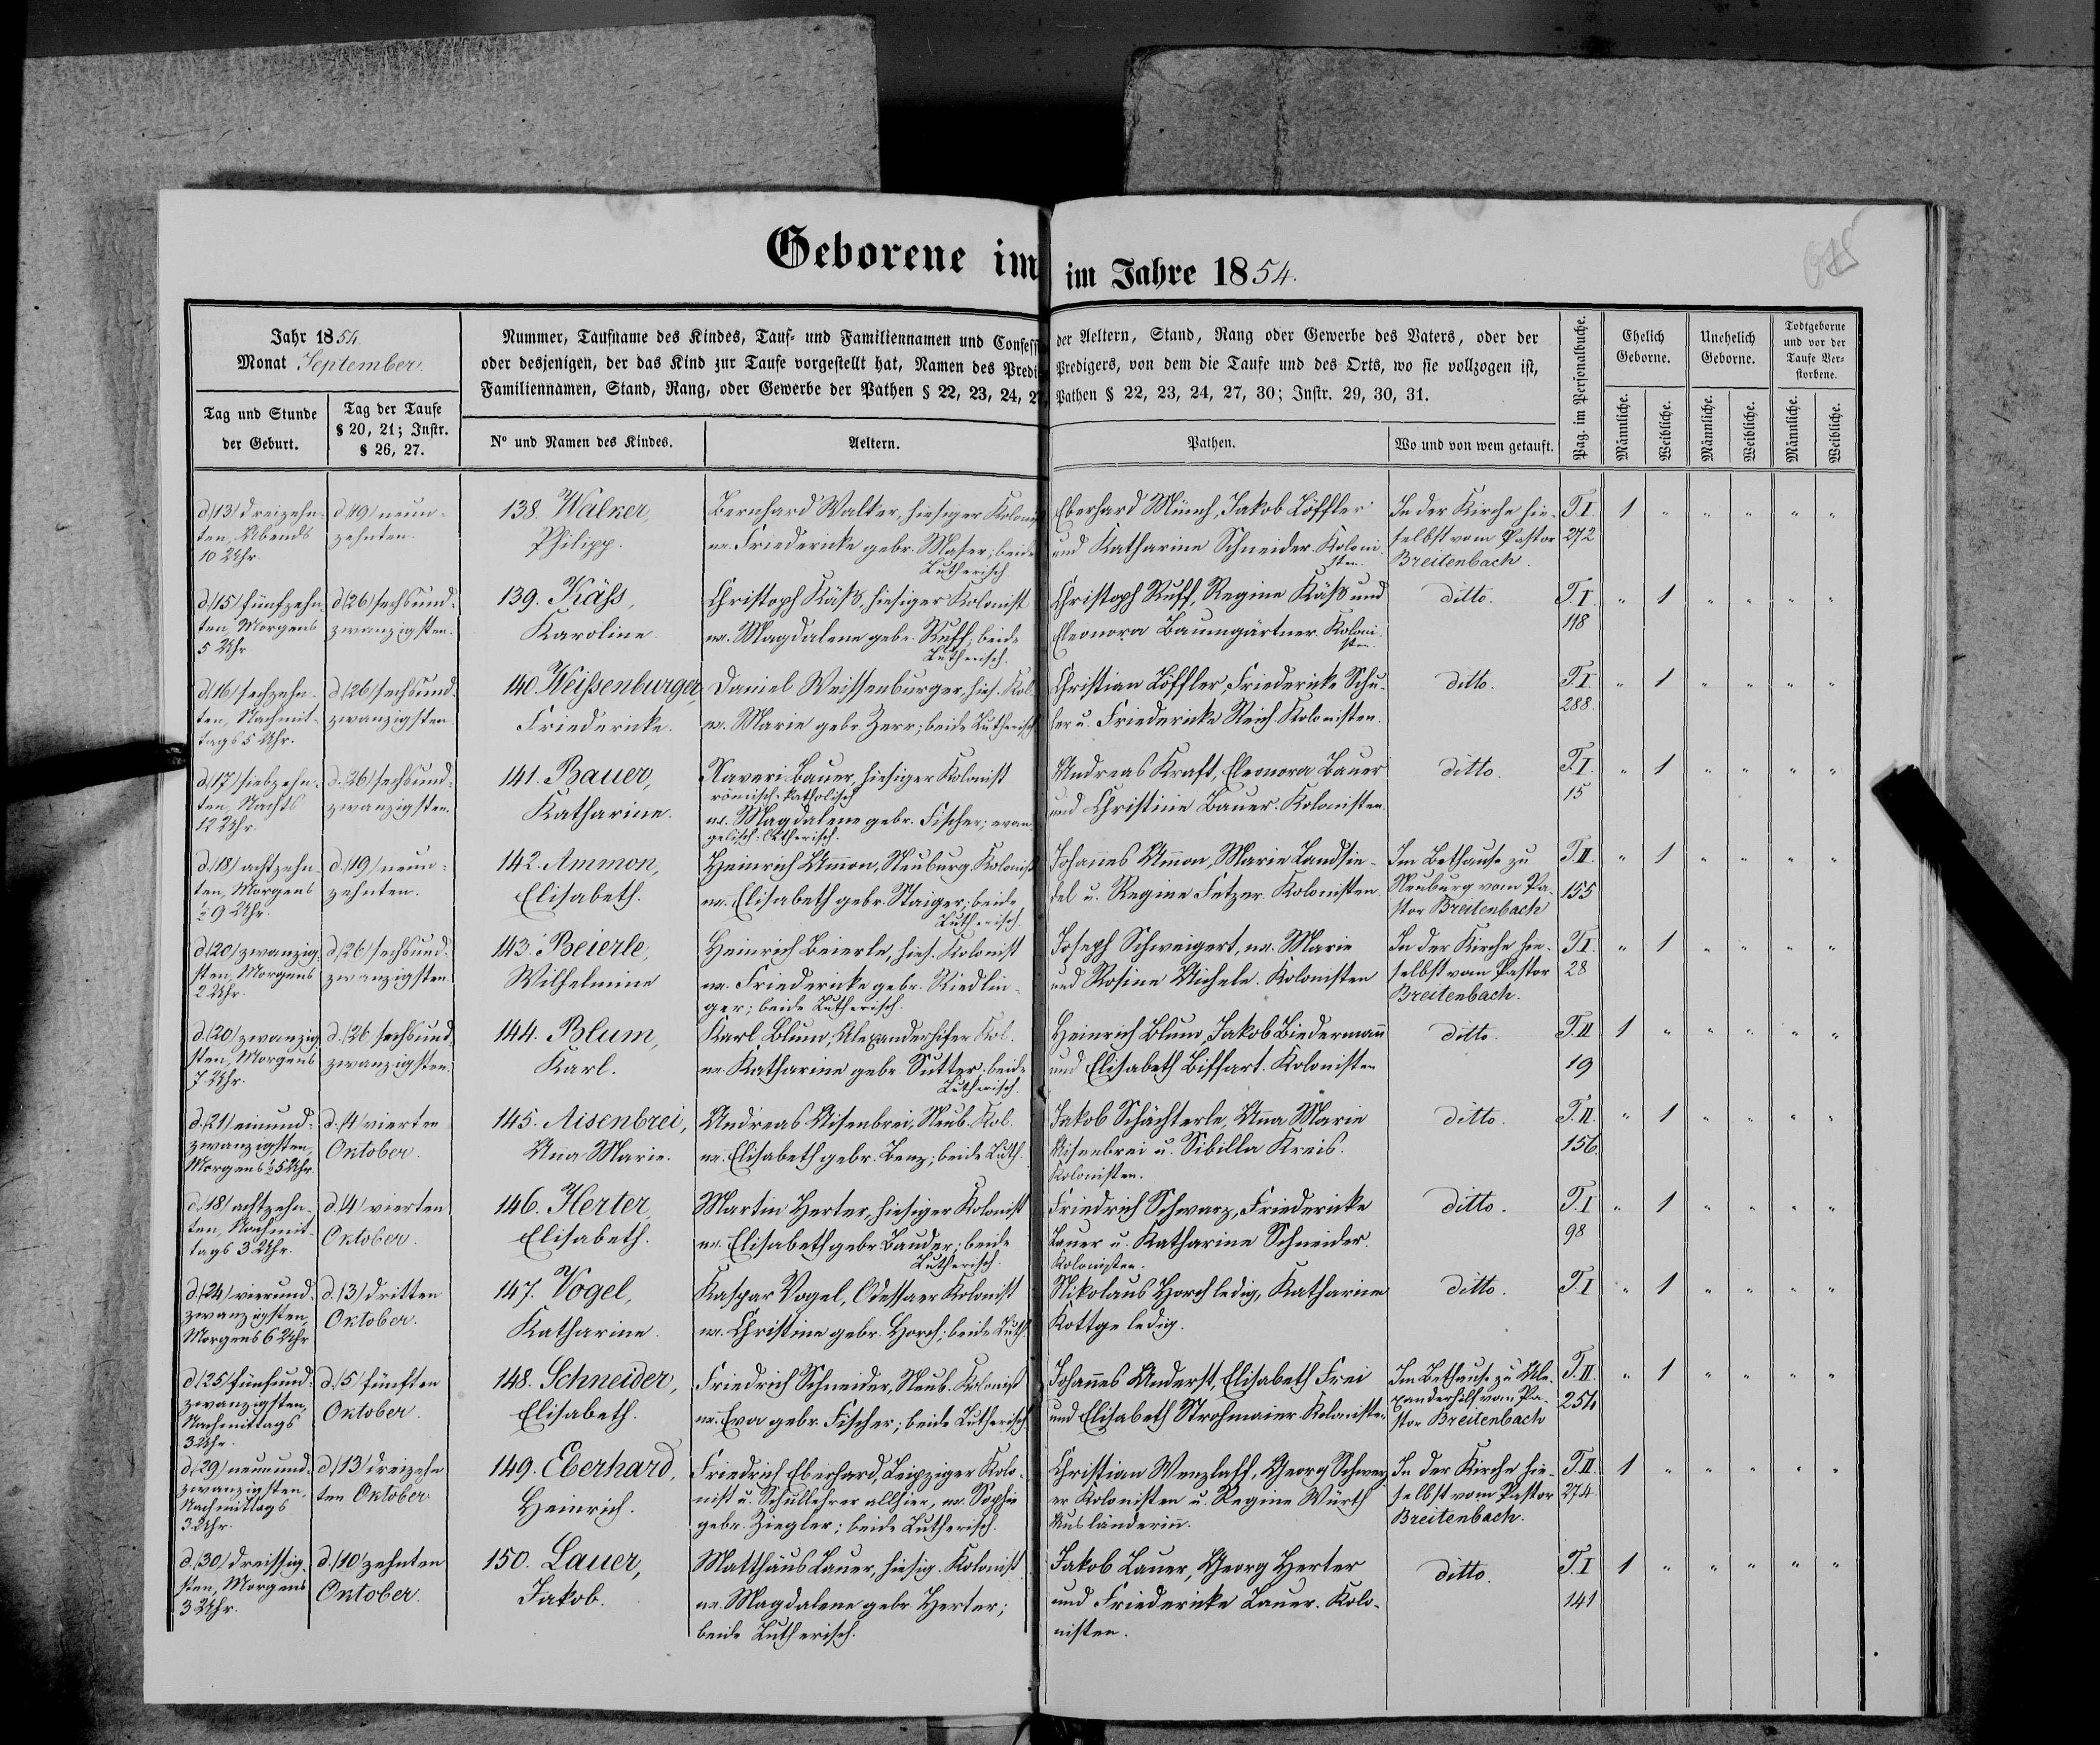 Geborene im
im Jahre 1854.
Jahr 1854.
Monat September.
Tag und Stunde
der Geburt.
Tag der Taufe
§ 20, 21; Instr.
§ 26, 27.
Nummer, Taufname des Kindes, Tauf- und Familiennamen und Confess
oder desjenigen, der das Kind zur Taufe vorgestellt hat, Namen des Predi
Familiennamen, Stand, Rang, oder Gewerbe der Pathen § 22, 23, 24, 2
No und Namen des Kindes.
Aeltern.
der Aeltern, Stand, Rang oder Gewerbe des Vaters, oder der
Predigers, von dem die Taufe und des Orts, wo sie vollzogen ist,
Pathen § 22, 23, 24, 27, 30; Instr. 29, 30, 31.
Pathen.
Wo und von wem getauft.
Pag. im Personalbuche.
Ehelich
Geborne.
Unehelich
Geborne.
Todtgeborne
und vor der
Taufe Ver-
storbene.
Männliche.
Weibliche.
Männliche.
Weibliche.
Männliche.
Weibliche.
d. (13) dreizehn-
ten, Abends
10 Uhr.
d. (19) neun-
zehnten.
138. Walker,
Philipp.
Bernhard Walker, hiesiger Kolonist
ux. Friedericke gebr. Maser; beide
Lutherisch.
Eberhard Münch, Jakob Löffler
und Katharine Schneider. Koloni-
sten.
In der Kirche hie-
selbst vom Pastor
Breitenbach.
T. I.
272
1 " " " " "
d. (15) fünfzehn-
ten, Morgens
5 Uhr
d. (26) sechsund-
zwanzigsten.
139. Käss,
Karoline.
Christoph Käss, hiesiger Kolonist
ux. Magdalena gebr. Ruff; beide
Lutherisch.
Christoph Ruff, Regine Käss und
Eleonora Baumgärtner. Koloni-
sten.
ditto.
T. I.
118
" 1 " " " "
d. (16) sechzehn-
ten, Nachmit-
tags 5 Uhr.
d. (26) sechsund-
zwanzigsten
140. Weissenburger,
Friedericke.
Daniel Weissenburger, hies. Kol.
ux. Marie gebr. Zerr; beide Lutherisch
Christian Löffler, Friedericke Schu-
ler u. Friedericke Reich. Kolonisten.
ditto.
T. I.
288.
" 1 " " " "
d. (17) siebzehn-
ten, Nachts
12 Uhr.
d. (26) sechsund-
zwanzigsten.
141. Bauer,
Katharine.
Xaveri Bauer, hiesiger Kolonist
römisch-katholisch
ux. Magdalena gebr. Fischer; evan-
gelisch-lutherisch.
Andreas Kraft, Eleonora Bauer
und Christine Bauer. Kolonisten.
ditto.
T. I.
15
" 1 " " " "
d. (18) achtzehn-
ten, Morgens
½ 9 Uhr.
d. (19) neun-
zehnten.
142. Ammon,
Elisabeth.
Heinrich Ammon, Neuburg. Kolonist
ux. Elisabeth gebr. Staiger; beide
Lutherisch.
Johannes Ammon, Marie Landsie-
del u. Regine Fetzer. Kolonisten.
Im Bethause zu
Neuburg vom Pa-
stor Breitenbach
T. II.
155
" 1 " " " "
d. (20) zwanzig-
sten, Morgens
2 Uhr.
d. (26) sechsund-
zwanzigsten
143. Beierle,
Wilhelmine
Heinrich Beierle, hies. Kolonist
ux. Friedericke gebr. Riedlin-
ger; beide Lutherisch.
Joseph Schweigert, ux. Marie
und Rosine Aichele. Kolonisten
In der Kirche hie-
selbst vom Pastor
Breitenbach.
T. I.
28
" 1 " " " "
d. (20) zwanzig-
sten, Morgens
7 Uhr.
d. (26) sechsund-
zwanzigsten.
144. Blum,
Karl.
Karl Blum, Alexanderhilfer Kol.
ux. Katharine gebr. Sutter; beide
Lutherisch.
Heinrich Blum, Jakob Biedermann
und Elisabeth Biffart. Kolonisten
ditto.
T. II
19
1 " " " " "
d. (21) einund-
zwanzigsten,
Morgens ½ 5 Uhr.
d. (4) vierten
Oktober.
145. Aisenbrei,
Anna Marie.
Andreas Aisenbrei, Neub. Kol.
ux. Elisabeth gebr. Benz; beide Luth.
Jakob Schächterle, Anna Marie
Aisenbrei u. Sibilla Kreis.
Kolonisten.
ditto.
T. II.
156.
" 1 " " " "
d. (18) achtzehn-
ten, Nachmit-
tags 3 Uhr.
d. (4) vierten
Oktober.
146. Herter,
Elisabeth.
Martin Herter, hiesiger Kolonist
ux. Elisabeth gebr. Bauder; beide
Lutherisch.
Friedrich Schwarz, Friedericke
Lauer u. Katharine Schneider.
Kolonisten.
ditto.
T. I
98
" 1 " " " "
d. (24) vierund-
zwanzigsten,
Morgens 6 Uhr
d. (3) dritten
Oktober.
147. Vogel,
Katharine.
Kaspar Vogel, Odessaer Kolonist
ux. Christine gebr. Horch; beide Luth.
Nikolaus Horch ledig, Katharine
Kottge ledig.
ditto.
T. I
" 1 " " " "
d. (25) fünfund-
zwanzigsten,
Nachmittags
3 Uhr.
d. (5) fünften
Oktober.
148. Schneider,
Elisabeth.
Friedrich Schneider, Neub. Kolonist
ux. Eva gebr. Fischer; beide Lutherisch.
Johannes Anderst, Elisabeth Frei
und Elisabeth Strohmaier. Kolonisten
Im Bethause zu Ale-
xanderhilf vom Pa-
stor Breitenbach
T. II.
254
" 1 " " " "
d. (29) neunund-
zwanzigsten,
Nachmittags
3 Uhr.
d. (13) dreizehn
ten Oktober
149. Eberhard,
Heinrich.
Friedrich Eberhard, Leipziger Kolo-
nist u. Schullehrer allhier, ux. Sophie
gebr. Ziegler; beide Lutherisch.
Christian Wenzlaff, Georg Schwei
er Kolonisten u. Regine Würth
Ausländerinn.
In der Kirche hie-
selbst vom Pastor
Breitenbach.
T. II.
274
1 " " " " "
d. (30) dreissig-
sten, Morgens
3 Uhr.
d. (10) zehnten
Oktober.
150. Lauer,
Jakob.
Matthäus Lauer, hiesig. Kolonist
ux. Magdalena gebr. Herter;
beide Lutherisch.
Jakob Lauer, Georg Herter
und Friedericke Lauer. Kolo-
nisten.
ditto.
T. I
141
1 " " " " "